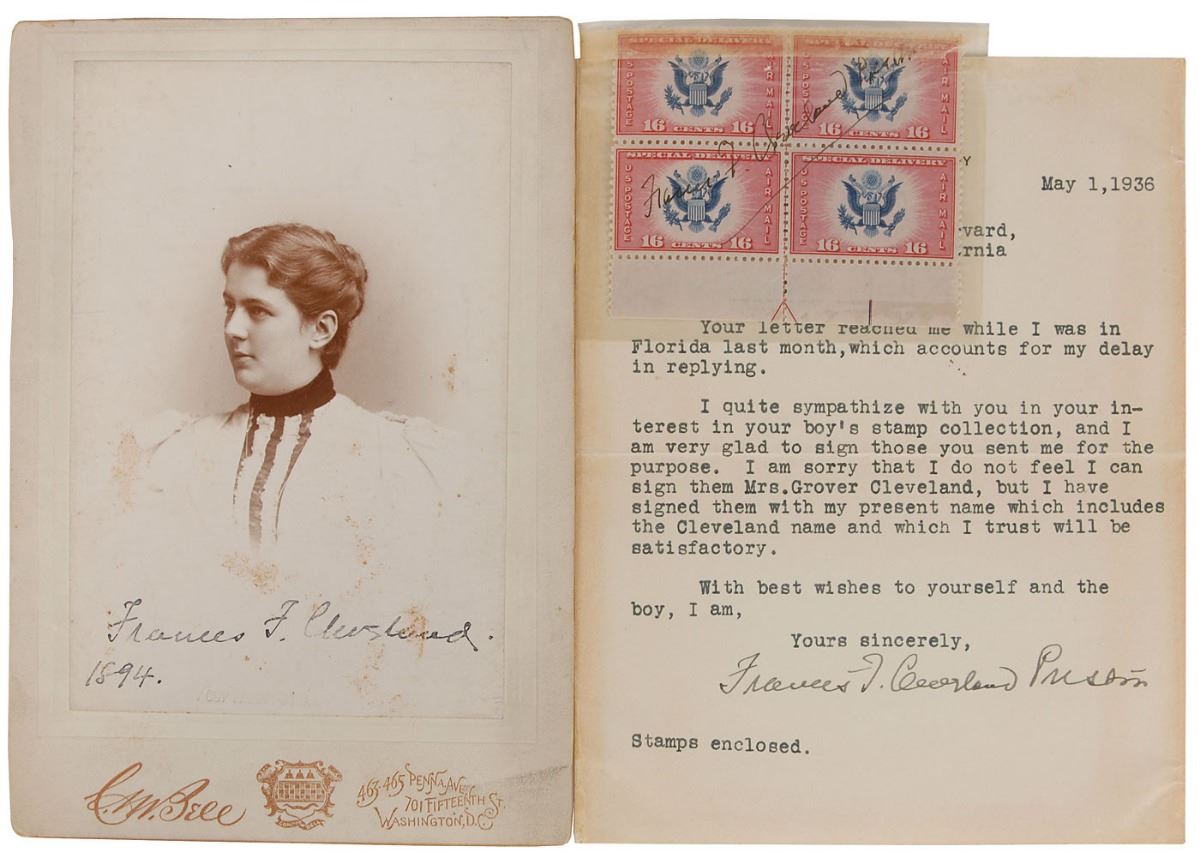 Frances F. Cleveland.
1894.
C.M. Bell
463-465 PENNA. AVE.
701 FIFTEENTH ST.
WASHINGTON, D.C.
SPECIAL DELIVERY
U S POSTAGE
AIR MAIL
16 CENTS 16
SPECIAL DELIVERY
U S POSTAGE
AIR MAIL
16 CENTS 16
SPECIAL DELIVERY
U S POSTAGE
AIR MAIL
16 CENTS 16
SPECIAL DELIVERY
U S POSTAGE
AIR MAIL
16 CENTS 16
Frances F. Cleveland Preston
Y
May 1,1936
vard,
rnia
Your letter reached me while I was in
Florida last month,which accounts for my delay
in replying.
I quite sympathize with you in your in-
terest in your boy's stamp collection, and I
am very glad to sign those you sent me for the
purpose. I am sorry that I do not feel I can
sign them Mrs.Grover Cleveland, but I have
signed them with my present name which includes
the Cleveland name and which I trust will be
satisfactory.
With best wishes to yourself and the
boy, I am,
Yours sincerely,
Frances F. Cleveland Preston
Stamps enclosed.